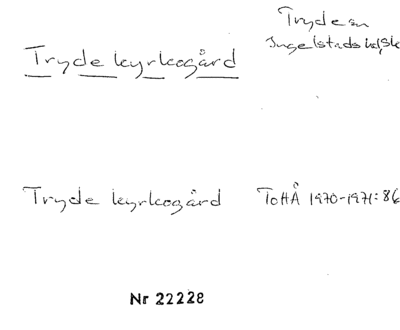 Tryde sn
Ingelstads hd, Sk
Tryde kyrkogård
Tryde kyrkogård ToHÅ 1970-1971:86
Nr 22228